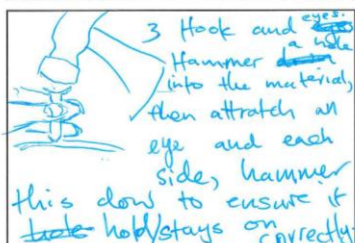 3 Hook and eyes.
Hammer a hole
into the material,
then attratch an
eye and each
side, hammer
this dow to ensure it
hold/stays on correctly